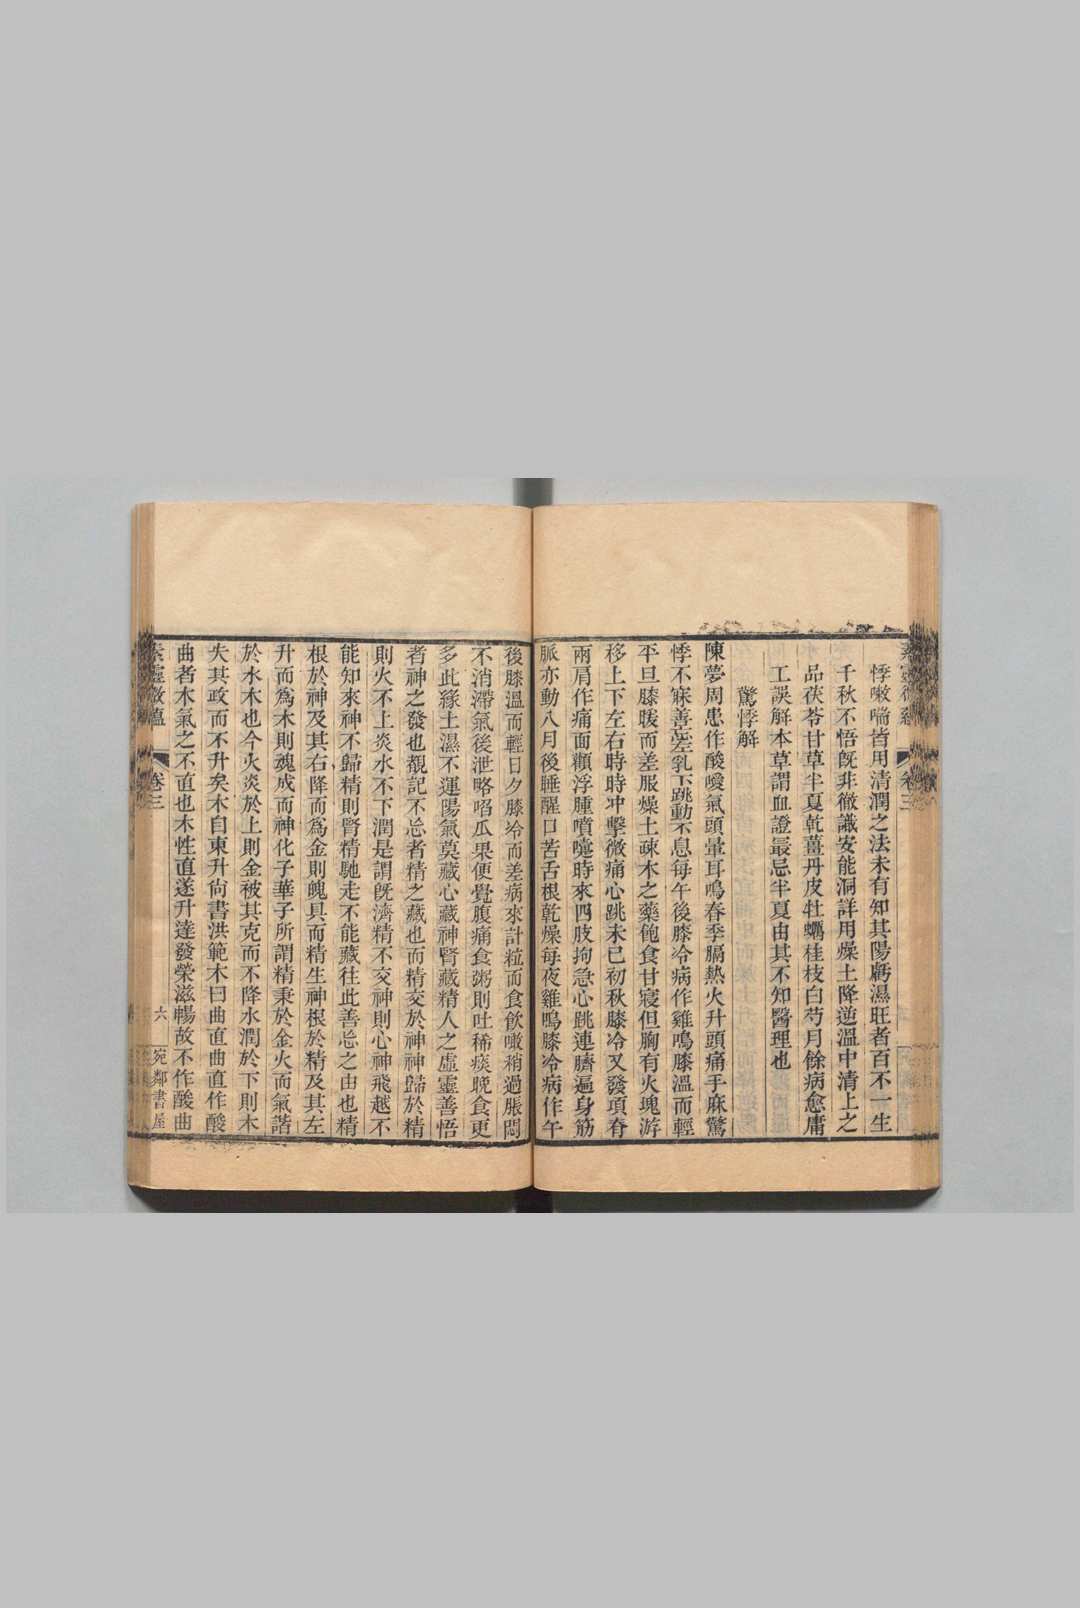 悸嗽喘皆用清潤之法未有知其陽虧濕旺者百不一生
千秋不悟旣非徹識安能洞詳用燥土降逆溫中清上之
品茯苓甘草半夏乾薑丹皮牡蠣桂枝白芍月餘病愈庸
工誤解本草謂血證最忌半夏由其不知醫理也
驚悸解
陳夢周患作酸噯氣頭暈耳鳴春季膈熱火升頭痛手麻驚
悸不寐善忘左乳下跳動不息每午後膝冷病作雞鳴膝溫而輕
平旦膝暖而差服燥土疎木之藥飽食甘寢但胸有火塊游
移上下左右時時冲擊微痛心跳未已初秋膝冷又發項脊
兩肩作痛面顴浮腫噴嚏時來四肢拘急心跳連臍遍身筋
脈亦動八月後睡醒口苦舌根乾燥每夜雞鳴膝冷病作午
後膝溫而輕日夕膝冷而差病來計粒而食飲噉稍過脹悶
不消滯氣後泄略啗瓜果便覺腹痛食粥則吐稀痰晚食更
多此緣土濕不運陽氣莫藏心藏神腎藏精人之虛靈善悟
者神之發也覩記不忘者精之藏也而精交於神神歸於精
則火不上炎水不下潤是謂旣濟精不交神則心神飛越不
能知來神不歸精則腎精馳走不能藏往此善忘之由也精
根於神及其右降而爲金則魄具而精生神根於精及其左
升而爲木則魂成而神化子華子所謂精秉於金火而氣諧
於水木也今火炎於上則金被其克而不降水潤於下則木
失其政而不升矣木自東升尙書洪範木曰曲直曲直作酸
曲者木氣之不直也木性直遂升達發榮滋暢故不作酸曲
素靈微蘊 卷三 六 宛鄰書屋